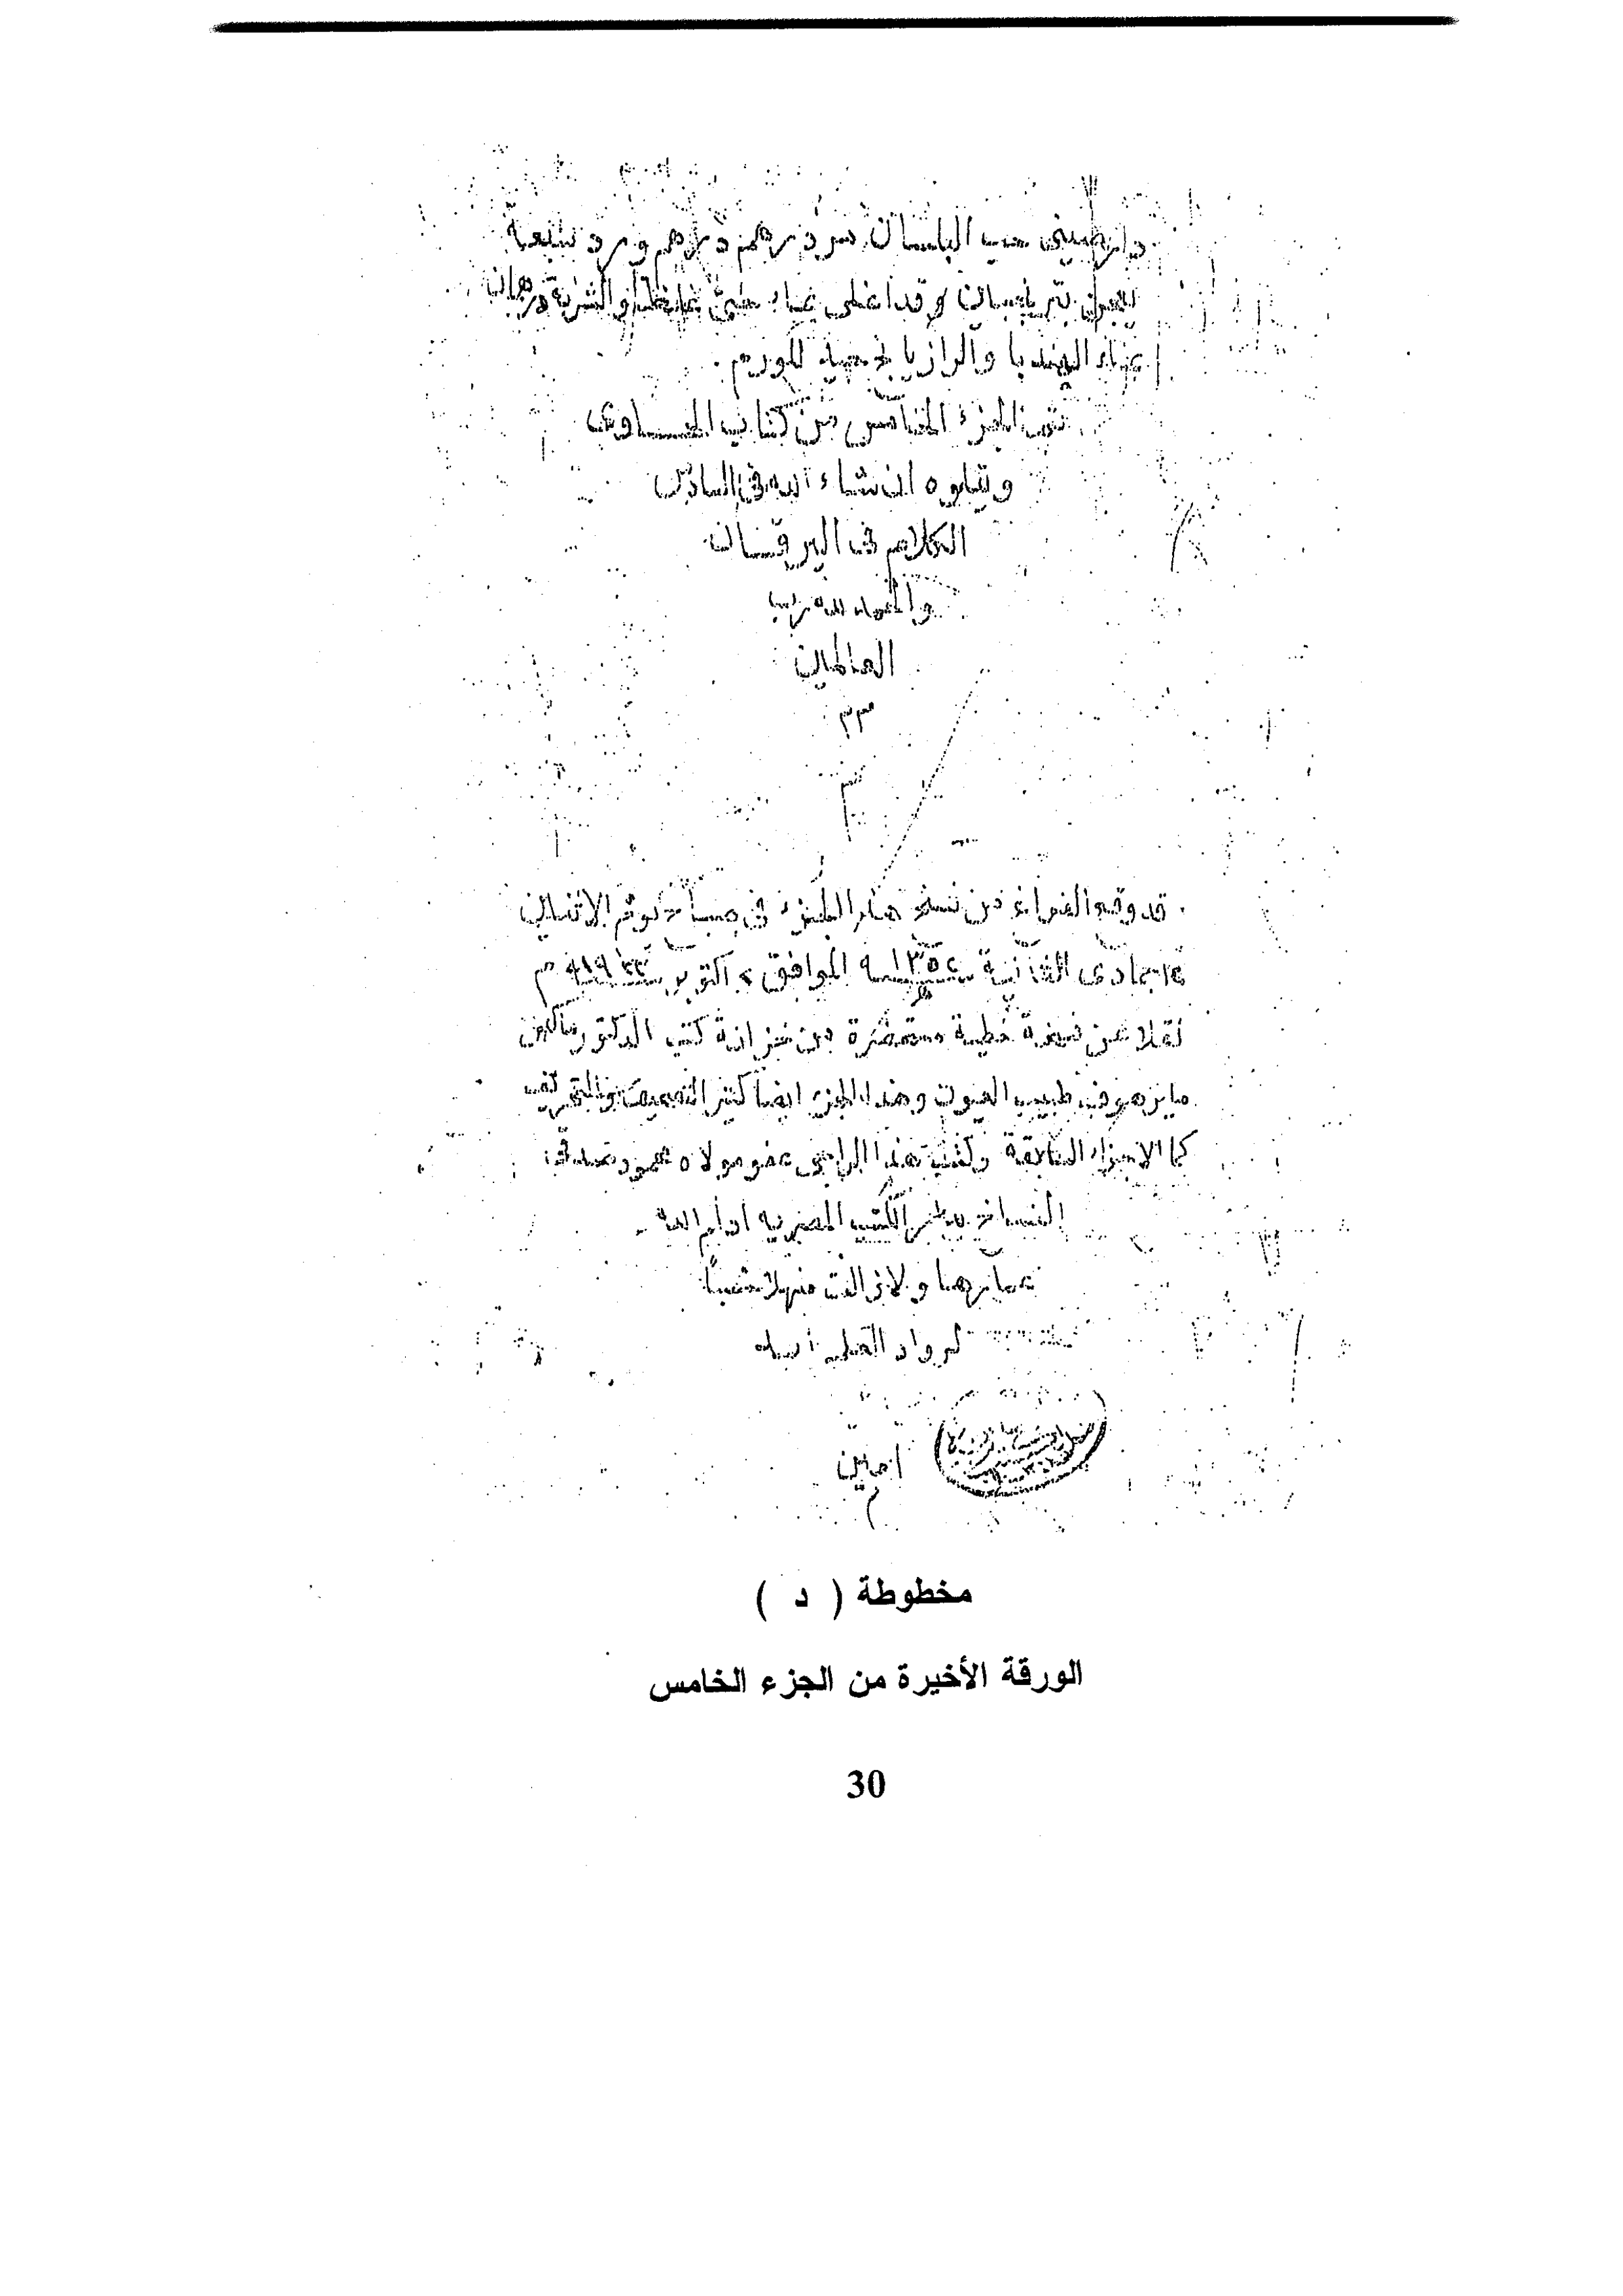 دارصينى حب البلسان درهم درهم ورد سبعة
يعجن وقد اغلى بماء والشربة درهمان
بماء الهندبا والرازيانج للورم
تم الجزء الخامس من كتاب الحاوى
ويتلوه ان شاء الله فى السادس
الكلام فى اليرقان
والحمد لله رب
العالمين
قد وقع الفراغ من نسخ هذا الجزء فى صباح يوم الاثنين
جمادى الثانية سنة ١٣٥٢ الموافق اكتوبر سنة ١٩٣٣ م
نقلا عن نسخة خطية مستحضرة من خزانة كتب الدكتور ماكس
مايرهوف طبيب العيون وهذا الجزء ايضا كثير التصحيف والتحريف
كما الاجزاء السابقة وكتبه هذا الراجى عفو مولاه محمود صدقى
النساخ بدار الكتب المصرية ادام الله
عمارها ولا زالت منهلا عذبا
لرواد العلم
امين
مخطوطة ( د )
الورقة الأخيرة من الجزء الخامس
30